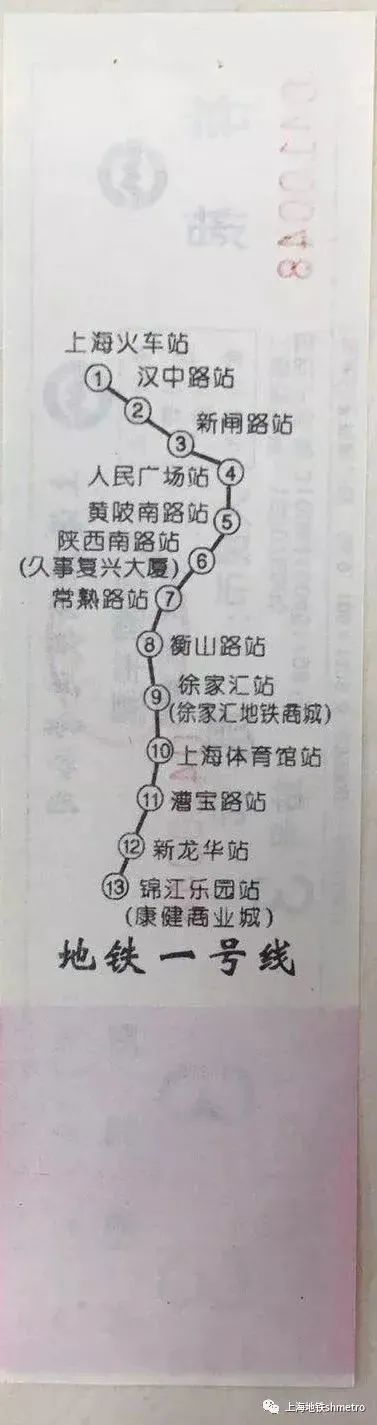 0110048
上海火车站
① 汉中路站
②
③ 新闸路站
人民广场站 ④
黄陂南路站 ⑤
陕西南路站 ⑥
(久事复兴大厦)
常熟路站 ⑦
⑧ 衡山路站
⑨ 徐家汇站
(徐家汇地铁商城)
⑩ 上海体育馆站
⑪ 漕宝路站
⑫ 新龙华站
⑬ 锦江乐园站
(康健商业城)
地铁一号线
上海地铁shmetro